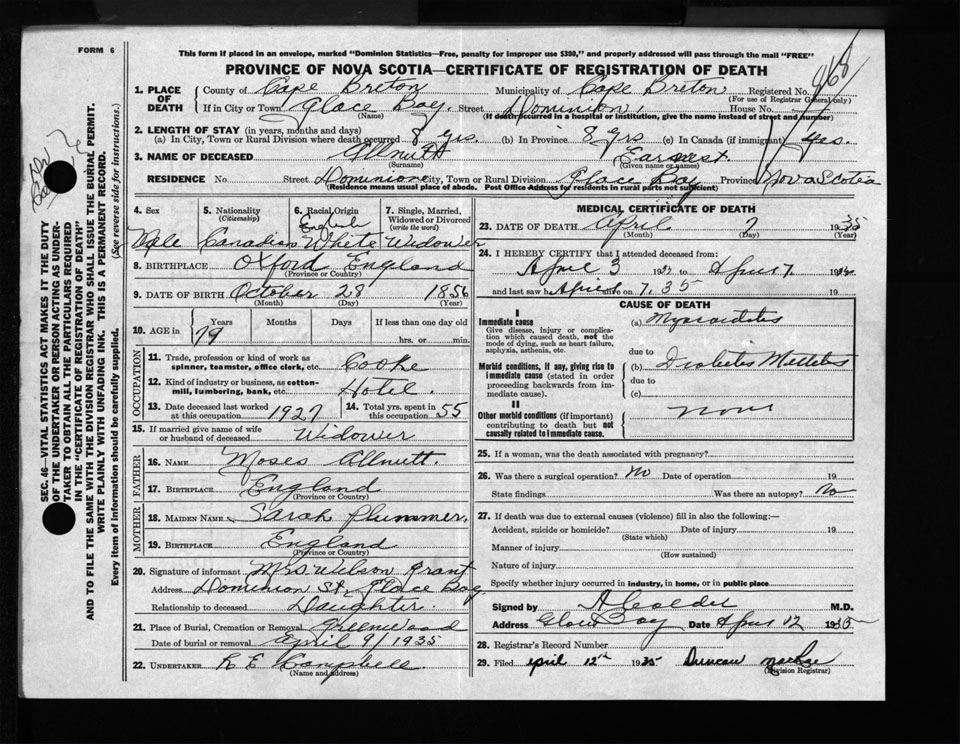 FORM 6
This form if placed in an envelope, marked "Dominion Statistics—Free, penalty for improper use $300," and properly addressed will pass through the mail "FREE"
PROVINCE OF NOVA SCOTIA—CERTIFICATE OF REGISTRATION OF DEATH
968
1. PLACE OF DEATH County of Cape Breton Municipality of Cape Breton Registered No.
(For use of Registrar General only)
If in City or Town Glace Bay Street Dominion House No.
(Name) (If death occurred in a hospital or institution, give the name instead of street and number)
2. LENGTH OF STAY (in years, months and days)
(a) In City, Town or Rural Division where death occurred 8 yrs. (b) In Province 8 yrs (c) In Canada (if immigrant) yrs.
3. NAME OF DECEASED Allnutt Earnest.
(Surname) (Given name or names)
RESIDENCE No. Street Dominion City, Town or Rural Division Glace Bay Province Nova Scotia
(Residence means usual place of abode. Post Office Address for residents in rural parts not sufficient)
4. Sex Male
5. Nationality (Citizenship) Canadian
6. Racial Origin English White
7. Single, Married, Widowed or Divorced (write the word) Widower
8. BIRTHPLACE Oxford England
(Province or Country)
9. DATE OF BIRTH October 28 1856
(Month) (Day) (Year)
10. AGE in Years Months Days If less than one day old
79 hrs. or min.
OCCUPATION
11. Trade, profession or kind of work as spinner, teamster, office clerk, etc. Cooke
12. Kind of industry or business, as cotton-mill, lumbering, bank, etc. Hotel.
13. Date deceased last worked at this occupation 1927 14. Total yrs. spent in this occupation 55
15. If married give name of wife or husband of deceased Widower
FATHER
16. NAME Moses Allnutt.
17. BIRTHPLACE England
(Province or Country)
MOTHER
18. MAIDEN NAME Sarah Plummer,
19. BIRTHPLACE England
(Province or Country)
20. Signature of informant Mrs Wilson Grant
Address Dominion St. Glace Bay.
Relationship to deceased Daughter.
21. Place of Burial, Cremation or Removal Greenwood
Date of burial or removal April 9/1935
22. UNDERTAKER R E Campbell
(Name and address)
MEDICAL CERTIFICATE OF DEATH
23. DATE OF DEATH April 7 1935
(Month) (Day) (Year)
24. I HEREBY CERTIFY that I attended deceased from:
April 3 19 to April 7. 19
and last saw h alive on 7. 35 19
CAUSE OF DEATH
I
Immediate cause
Give disease, injury or complication which caused death, not the mode of dying, such as heart failure, asphyxia, asthenia, etc.
(a) Myocarditis
due to
Morbid conditions, if any, giving rise to immediate cause (stated in order proceeding backwards from immediate cause).
(b) Diabetes Mellitus
due to
(c)
II
Other morbid conditions (if important) contributing to death but not causally related to immediate cause.
none
25. If a woman, was the death associated with pregnancy?
26. Was there a surgical operation? No Date of operation 19
State findings Was there an autopsy? No
27. If death was due to external causes (violence) fill in also the following:—
Accident, suicide or homicide? Date of injury 19
(State which)
Manner of injury
(How sustained)
Nature of injury
Specify whether injury occurred in industry, in home, or in public place
Signed by M.D.
Address Glace Bay Date April 12 1935
28. Registrar's Record Number
29. Filed April 12th 1935 Duncan
(Division Registrar)
SEC. 46—VITAL STATISTICS ACT MAKES IT THE DUTY
OF THE UNDERTAKER OR PERSON ACTING AS UNDERTAKER TO OBTAIN ALL THE PARTICULARS REQUIRED
IN THE "CERTIFICATE OF REGISTRATION OF DEATH"
AND TO FILE THE SAME WITH THE DIVISION REGISTRAR WHO SHALL ISSUE THE BURIAL PERMIT.
WRITE PLAINLY WITH UNFADING INK. THIS IS A PERMANENT RECORD.
Every item of information should be carefully supplied. (See reverse side for instructions.)